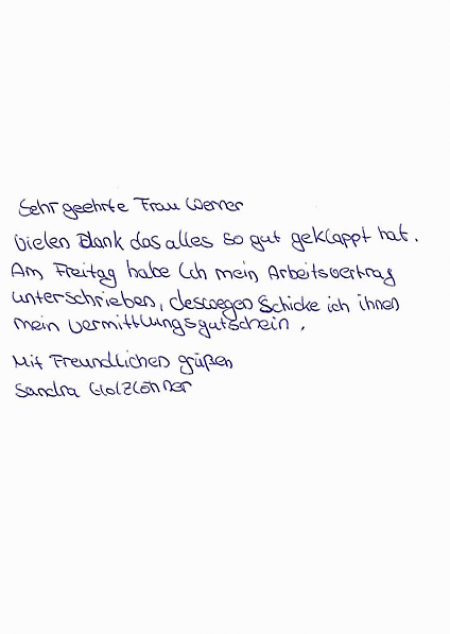 Sehr geehrte Frau Werner
Vielen Dank das alles so gut geklappt hat.
Am Freitag habe ich mein Arbeitsvertrag
unterschrieben, deswegen schicke ich ihnen
mein vermittlungsgutschein.
Mit Freundlichen grüßen
Sandra